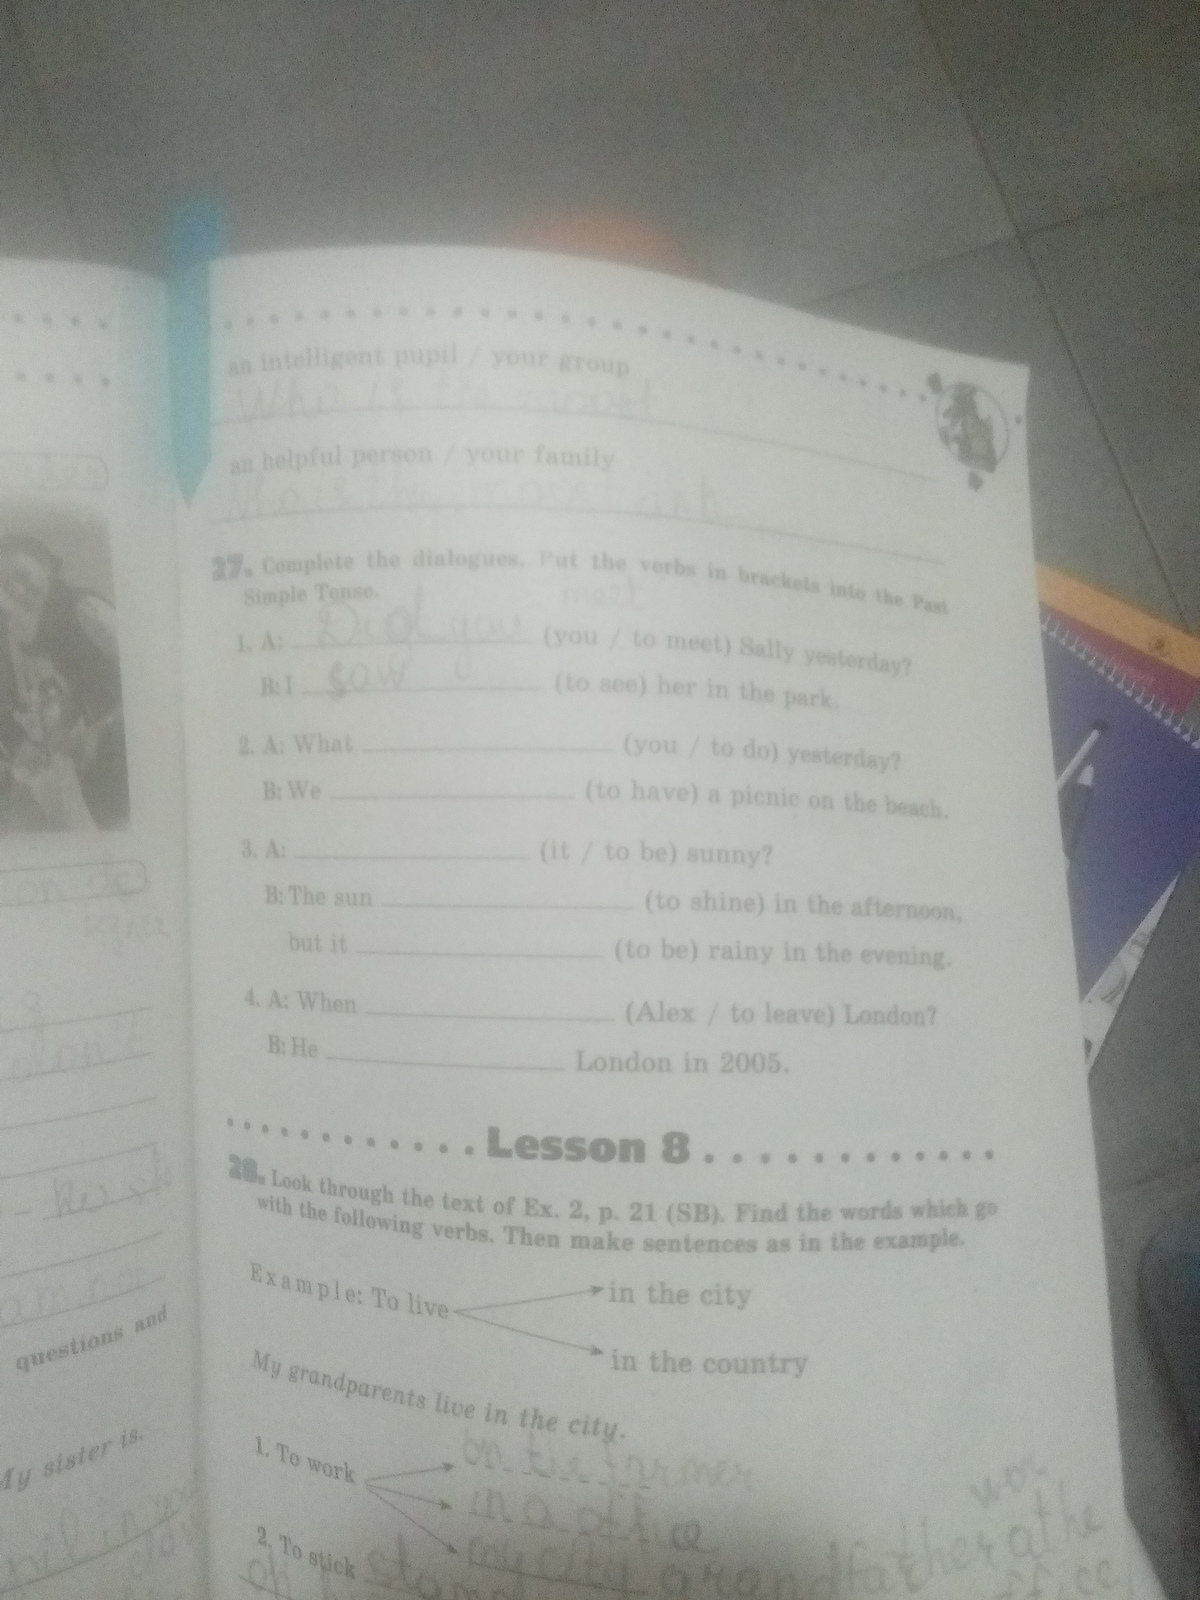 an intelligent pupil / your group
Who is the moost
an helpful person / your family
Who is the moost
27. Complete the dialogues. Put the verbs in brackets into the Past
Simple Tense.
meet
1. A: Did you (you / to meet) Sally yesterday?
B: I saw (to see) her in the park.
2. A: What (you / to do) yesterday?
B: We (to have) a picnic on the beach.
3. A: (it / to be) sunny?
B: The sun (to shine) in the afternoon,
but it (to be) rainy in the evening.
4. A: When (Alex / to leave) London?
B: He London in 2005.
Lesson 8
28. Look through the text of Ex. 2, p. 21 (SB). Find the words which go
with the following verbs. Then make sentences as in the example.
Example: To live
in the city
in the country
My grandparents live in the city.
1. To work
on the farmer
in a office
my city grandfather
2. To stick
questions and
My sister is.